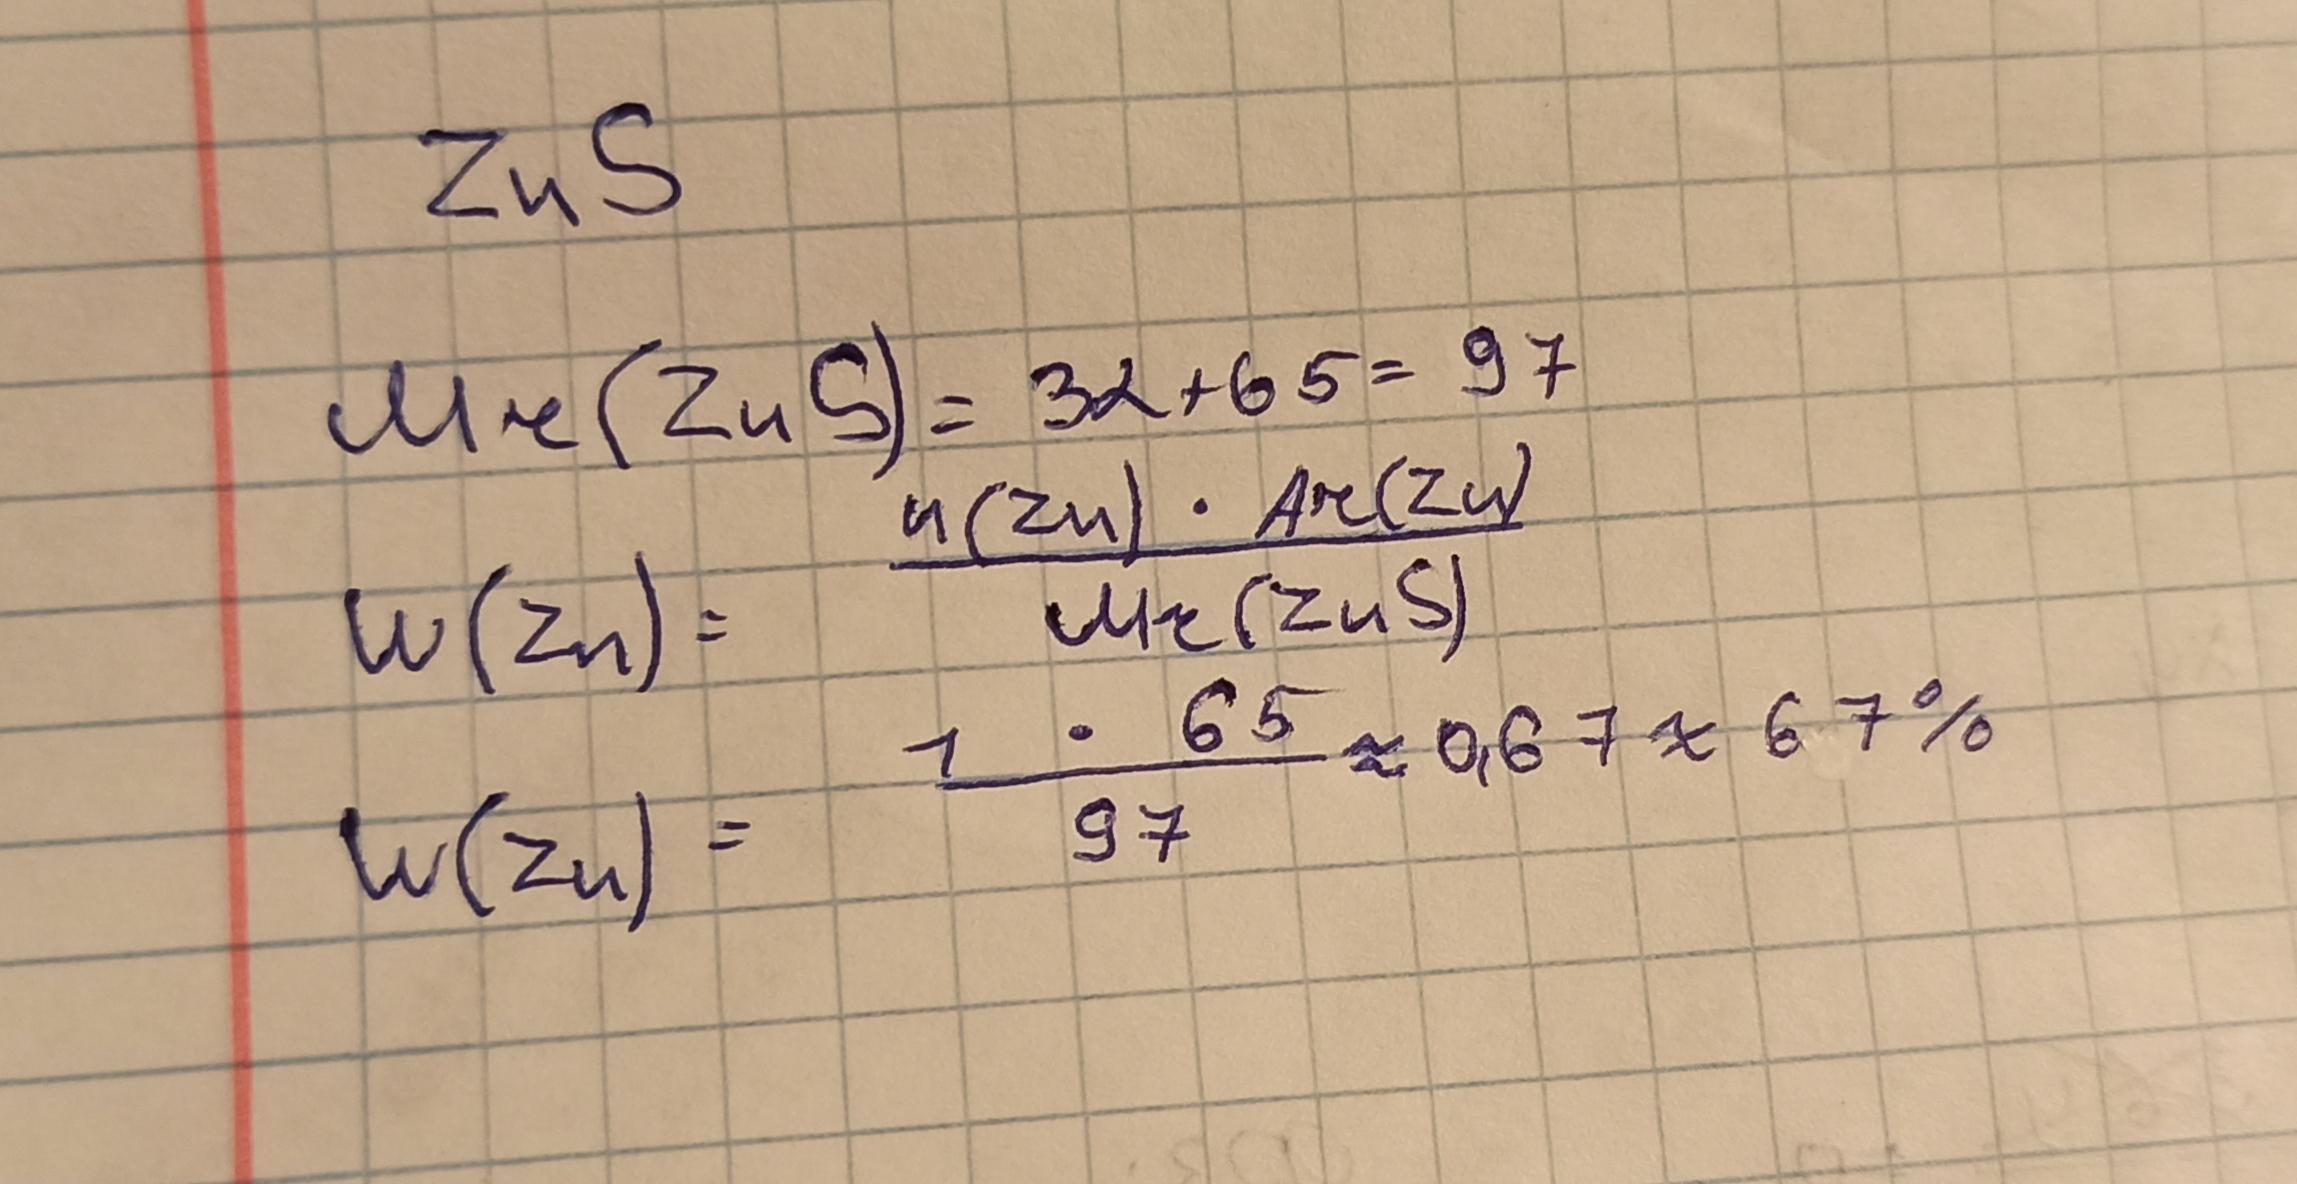 ZnS
Mr(ZnS) = 32+65 = 97
W(Zn) = n(Zn) · Ar(Zn) / Mr(ZnS)
W(Zn) = 1 · 65 / 97 ≈ 0,67 ≈ 67%